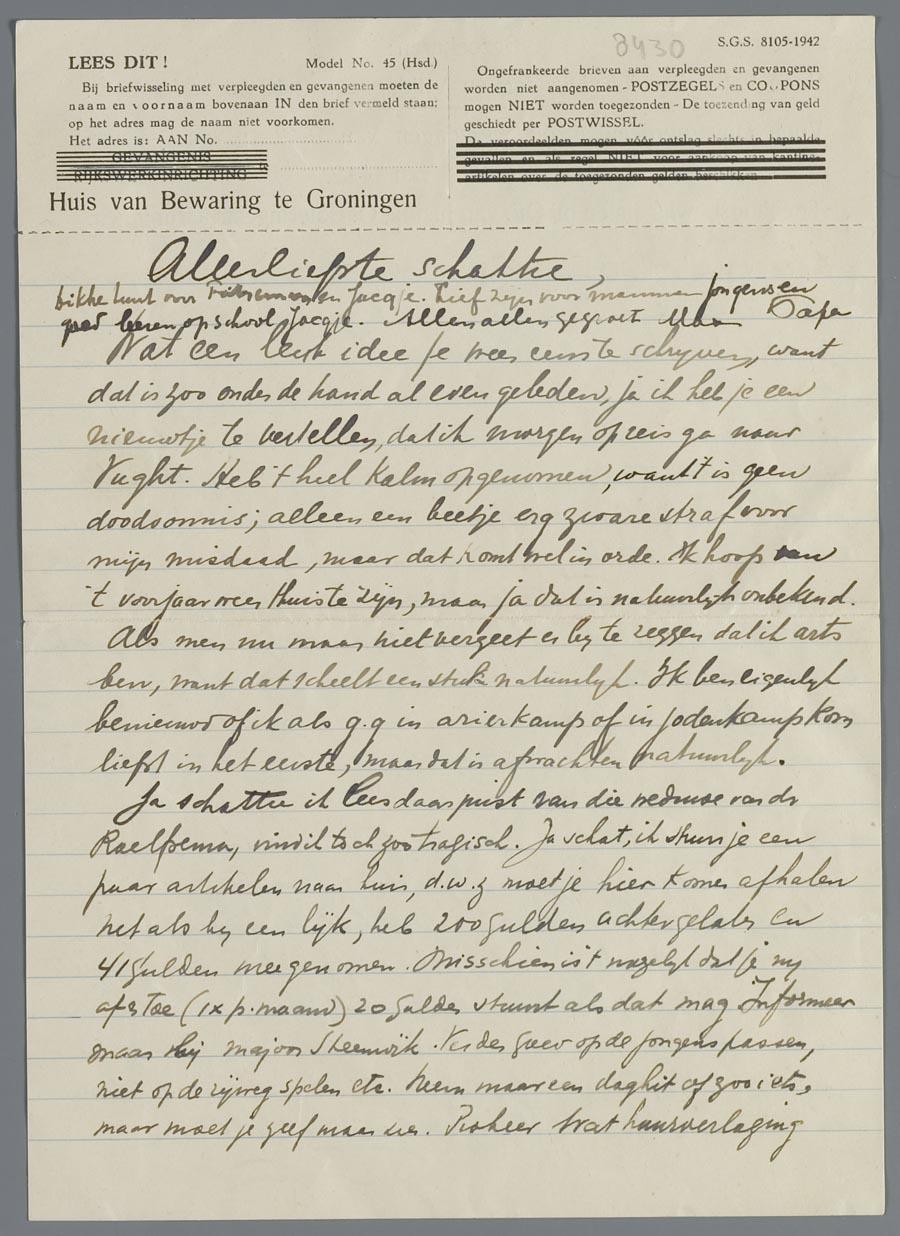 8430
S.G.S. 8105-1942
LEES DIT! Model No. 45 (Hsd.)
Bij briefwisseling met verpleegden en gevangenen moeten de
naam en voornaam bovenaan IN den brief vermeld staan;
op het adres mag de naam niet voorkomen.
Het adres is: AAN No.
GEVANGENIS
RIJKSWERKINRICHTING
Huis van Bewaring te Groningen
Ongefrankeerde brieven aan verpleegden en gevangenen
worden niet aangenomen - POSTZEGELS en COUPONS
mogen NIET worden toegezonden - De toezending van geld
geschiedt per POSTWISSEL.
De veroordeelden mogen vóór ontslag slechts in bepaalde
gevallen en als regel NIET voor aankoop van kantine-
artikelen over de toegezonden gelden beschikken
Allerliefste schattie,
dikke kunt voor en Jacqje. Lief zijn voor mamma jongens en
goed leeren op school Jacqje. Allen allen gegroet Papa
Wat een leuk idee je weer eens te schrijven, want
dat is zoo onder de hand al even geleden, ja ik heb je een
nieuwtje te vertellen, dat ik morgen op reis ga naar
Vught. Heb 't heel kalm opgenomen, want 't is geen
doodvonnis; alleen een beetje erg zware straf voor
mijn misdaad, maar dat komt wel in orde. Ik hoop van
't voorjaar weer thuis te zijn, maar ja dat is natuurlijk onbekend.
Als men nu maar niet vergeet er bij te zeggen dat ik arts
ben, want dat scheelt een stuk natuurlijk. Ik ben eigenlijk
benieuwd of ik als g.g in arierkamp of in jodenkamp kom
liefst in het eerste, maar dat is afwachten natuurlijk.
Ja schattie ik lees daar juist van die weduwe van dr
Roelfsema, vind ik toch zoo tragisch. Ja schat, ik stuur je een
paar artikelen naar huis, d.w.z moet je hier komen afhalen
net als bij een lijk, heb 200 gulden achtergelaten en
41 gulden meegenomen. Misschien is 't mogelijk dat je mij
af en toe (1x p. maand) 20 gulden stuurt als dat mag Informeer
maar bij majoor Steenwijk. Verder goed op de jongens passen,
niet op de rijweg spelen etc. Neem maar een daghit of zoo iets,
maar moet je zelf maar zien. Probeer wat huurverlaging